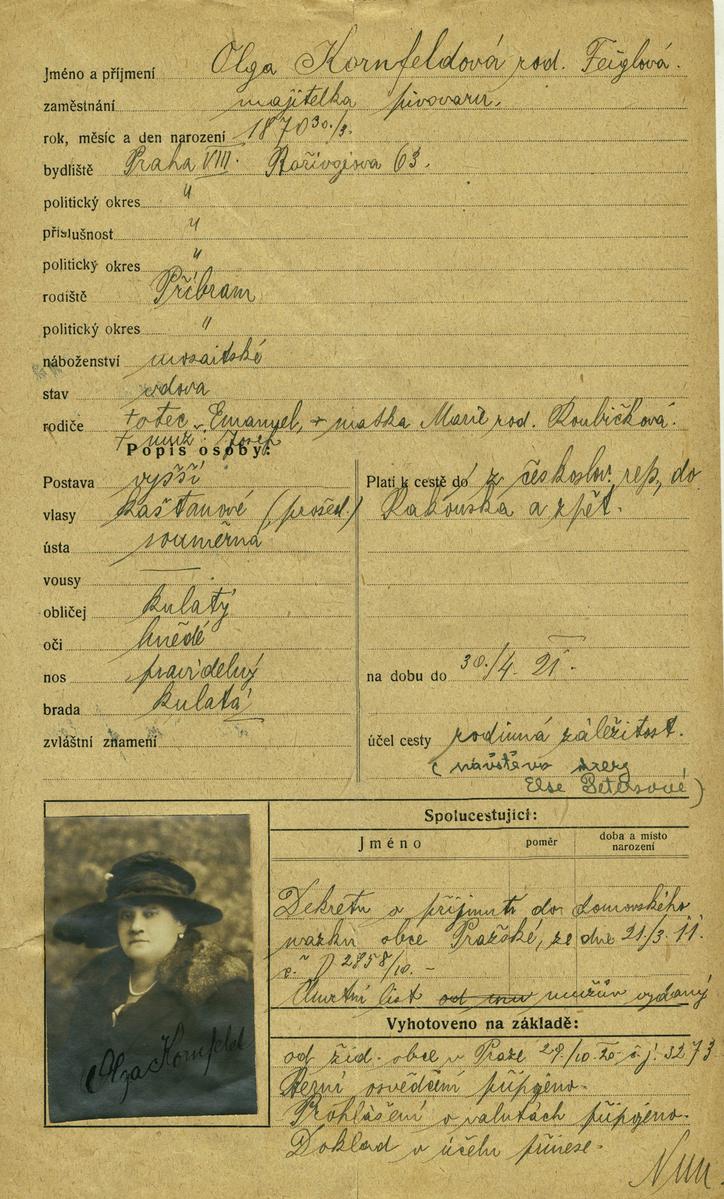 Jméno a příjmení Olga Kornfeldová rod. Feiglová.
zaměstnání majitelka pivovaru.
rok, měsíc a den narození 1870 30./3.
bydliště Praha VIII. 63.
politický okres "
příslušnost "
politický okres "
rodiště Příbram
politický okres "
náboženství mosaitské
stav vdova
rodiče † otec Emanuel, + matka Marie rod. Koubíčková.
† muž: Josef
Popis osoby:
Postava vyšší
vlasy kaštanové (prošed.)
ústa souměrná
vousy —
obličej kulatý
oči hnědé
nos pravidelný
brada kulatá
zvláštní znamení
Platí k cestě do z českoslov. rep. do
Rakouska a zpět.
na dobu do 30./4. 21.
účel cesty rodinná záležitost.
(návštěva dcery
Else Petersové)
Spolucestující:
Jméno poměr doba a místo narození
Dekretu o přijmutí do domovského
svazku obce Pražské, ze dne 21/3. 11.
č. 2858/10. -
Úmrtní list mužův vydaný
Vyhotoveno na základě:
od žid. obce v Praze 29/10. 20 č. j. 3273
Berní osvědčení připojeno.
Prohlášení o valutách připojeno.
Doklad o účelu přinese.
Olga Kornfeld